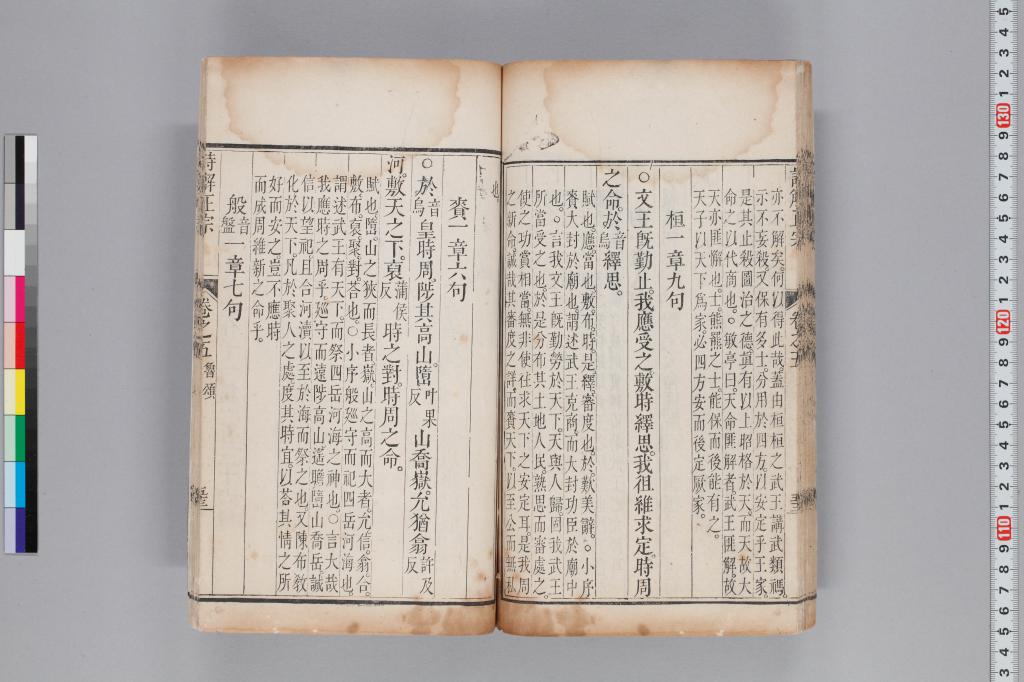 亦不解矣。何以得此哉。蓋由桓桓之武王講武類禡。
示不妄殺。又保有多士。分用於四方。以安定乎王家。
是其止殺圖治之德。眞有以上昭格於天。而天故大
命之以代商也。○敬亭曰。天命匪解者。武王匪解。故
天亦匪懈也。士熊羆之士。能保而後能有之。
天子以天下爲家。必四方安而後定厥家。
桓一章九句
○文王旣勤止。我應受之。敷時繹思。我徂維求定。時周
之命。於音烏繹思。
賦也。應當也。敷布。時是。繹審度也。於歎美辭。○小序
賚大封於廟也。謂述武王克商。而大封功臣於廟中
也。○言我文王旣勤勞於天下。天與人歸。固我武王
所當受之也。於是分布其土地人民。熟思而審處之。
使之功賞相當。無非使往求天下之安定耳。是我周
之新命。誠哉其審度之詳。而賚天下。以至公而無私
也。
賚一章六句
○於音烏皇時周。陟其高山。嶞叶果反山喬嶽。允猶翕許及反
河。敷天之下。裒蒲侯反時之對。時周之命。
賦也。嶞山之狹而長者。嶽山之高而大者。允信。翕合。
敷布。裒聚。對荅也。○小序般廵守而祀四岳河海也。
謂述武王有天下。而祭四岳河海之神也。○言大哉
我應時之周乎。廵守而遠陟高山。遙瞻嶞山喬岳。誠
信以望祀。且合河瀆。以至於海而祭之也。又陳布敎
化於天下。凡於聚人之處。度其時宜。以荅其情之所
好而安之。豈不應時
而成周維新之命乎。
般音盤一章七句
詩解正宗 卷之五 魯頌
卷之五
130
120
110